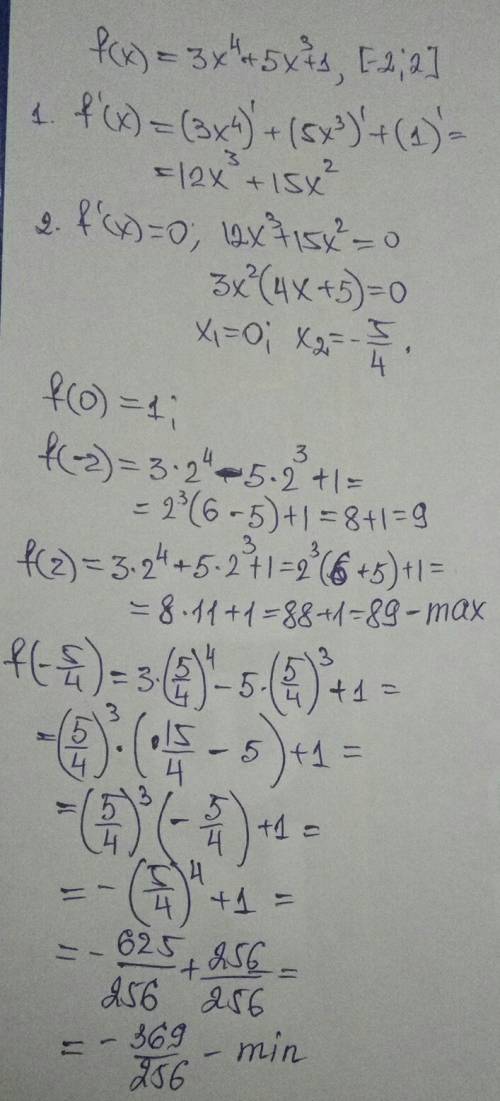 f(x) = 3x⁴+5x³+1, [-2;2]
1. f'(x) = (3x⁴)' + (5x³)' + (1)' =
=12x³ + 15x²
2. f'(x)=0; 12x³+15x²=0
3x²(4x+5)=0
x₁=0; x₂=-5/4.
f(0)=1;
f(-2)=3·2⁴-5·2³+1=
=2³(6-5)+1=8+1=9
f(2)=3·2⁴+5·2³+1=2³(6+5)+1=
=8·11+1=88+1=89-max
f(-5/4)=3·(5/4)⁴-5·(5/4)³+1=
=(5/4)³·(15/4-5)+1=
=(5/4)³(-5/4)+1=
=-(5/4)⁴+1=
=-625/256+256/256=
=-369/256-min